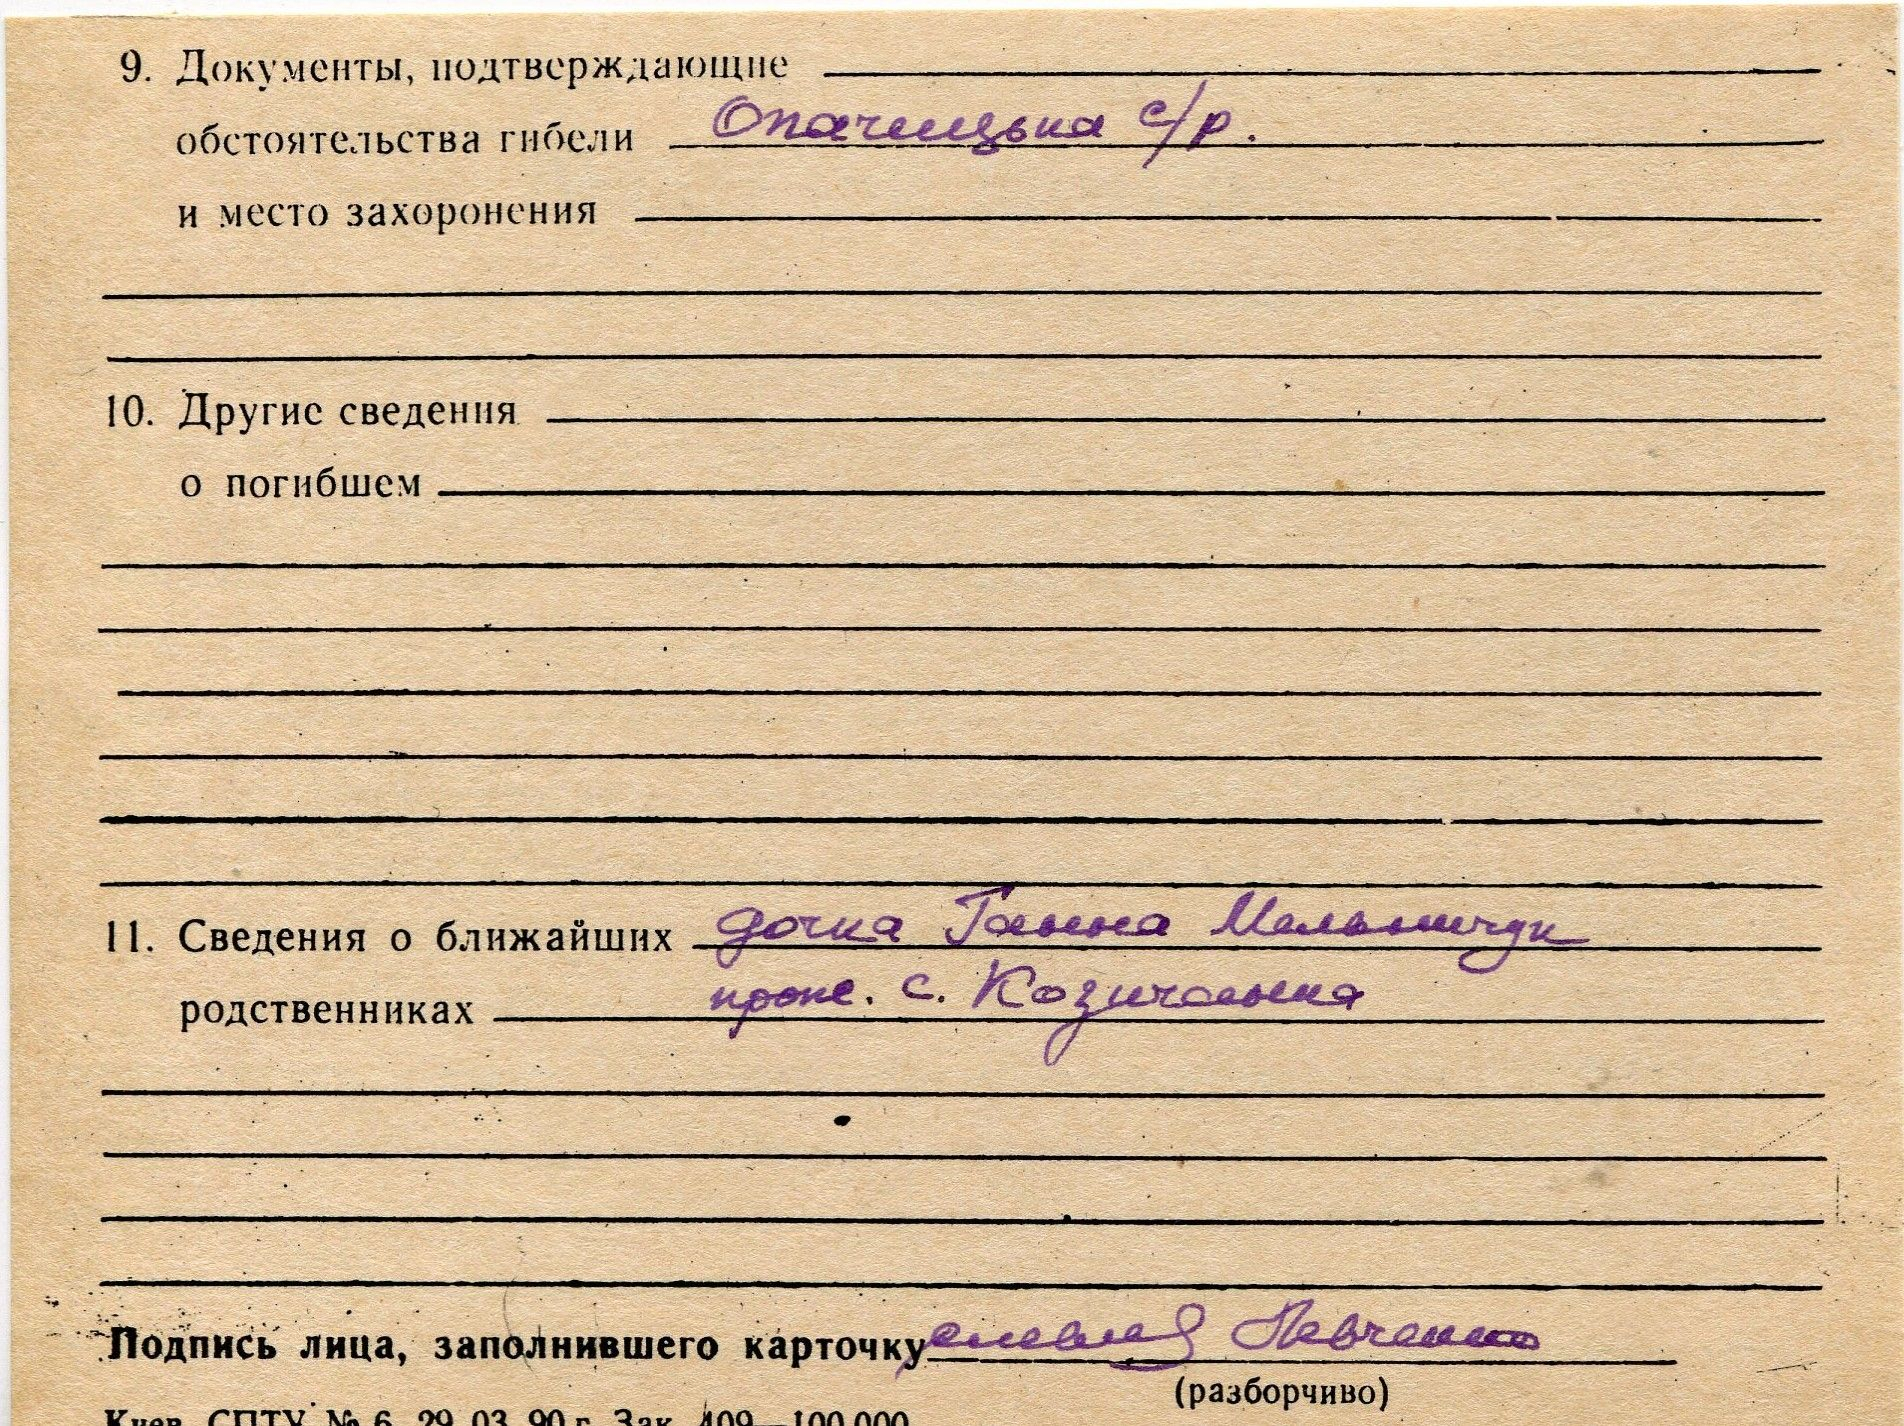 9. Документы, подтверждающие
обстоятельства гибели Опачицька с/р.
и место захоронения
10. Другие сведения
о погибшем
11. Сведения о ближайших дочка Ганна Мельничук
родственниках прож. с.
Подпись лица, заполнившего карточку
(разборчиво)
Киев, СПТУ № 6, 29.03.90 г. Зак. 409—100 000